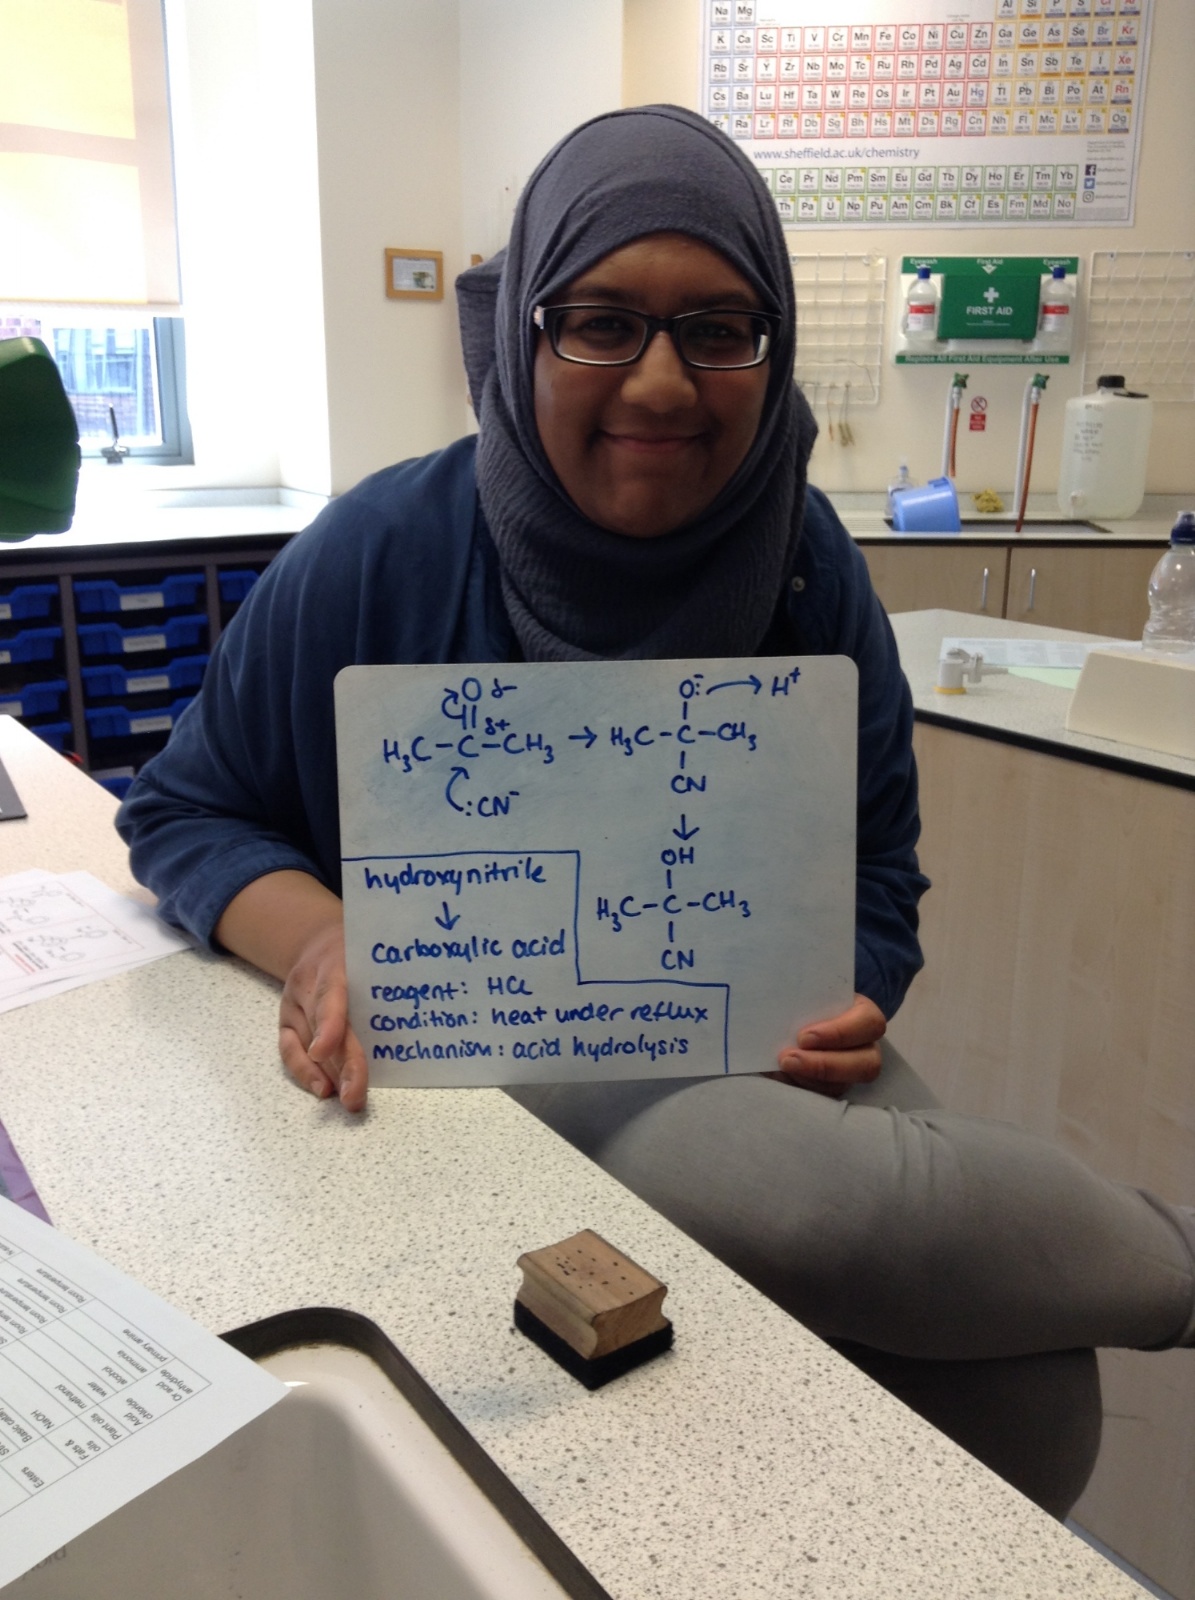 Na Mg Al Si P S Cl Ar
K Ca Sc Ti V Cr Mn Fe Co Ni Cu Zn Ga Ge As Se Br Kr
Rb Sr Y Zr Nb Mo Tc Ru Rh Pd Ag Cd In Sn Sb Te I Xe
Cs Ba Lu Hf Ta W Re Os Ir Pt Au Hg Tl Pb Bi Po At Rn
Fr Ra Lr Rf Db Sg Bh Hs Mt Ds Rg Cn Nh Fl Mc Lv Ts Og
www.sheffield.ac.uk/chemistry
Ce Pr Nd Pm Sm Eu Gd Tb Dy Ho Er Tm Yb
Th Pa U Np Pu Am Cm Bk Cf Es Fm Md No
Eyewash First Aid Eyewash
FIRST AID
Replace All First Aid Equipment After Use
O δ-
δ+
H₃C-C-CH₃ → H₃C-C-CH₃
:CN⁻
O:⁻ → H⁺
CN
OH
H₃C-C-CH₃
CN
hydroxynitrile
↓
carboxylic acid
reagent: HCl
condition: heat under reflux
mechanism: acid hydrolysis
Room temperature
Room temperature
primary amine
ammonia
alcohol
water
methanol
NaOH
Or acid
anhydride
Acid
chloride
Plant oils
Fats &
oils
Esters